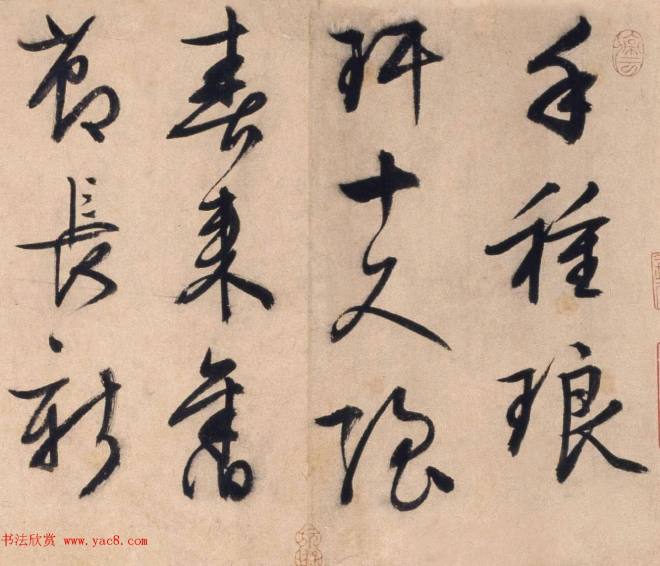 手種琅
玕十丈强
春来舊
節長新
书法欣赏 www.yac8.com